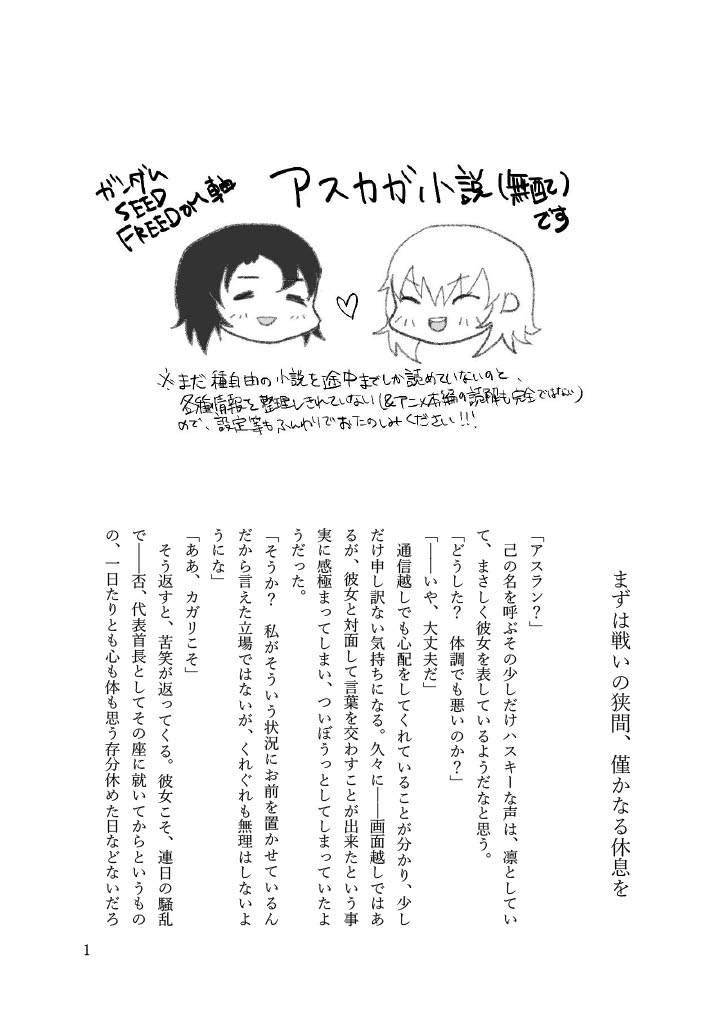 ガンダム
SEED
FREEDOM軸
アスカガ小説(無配)
です
※まだ種自由の小説を途中までしか読めていないのと、
各種情報を整理しきれていない(&アニメ本編の読解も完全ではない)
ので、設定等もふんわりでおたのしみください!!!
まずは戦いの狭間、僅かなる休息を
「アスラン?」
己の名を呼ぶその少しだけハスキーな声は、凛としてい
て、まさしく彼女を表しているようだなと思う。
「どうした? 体調でも悪いのか?」
「――いや、大丈夫だ」
通信越しでも心配をしてくれていることが分かり、少し
だけ申し訳ない気持ちになる。久々に――画面越しではあ
るが、彼女と対面して言葉を交わすことが出来たという事
実に感極まってしまい、ついぼうっとしてしまっていたよ
うだった。
「そうか? 私がそういう状況にお前を置かせているん
だから言えた立場ではないが、くれぐれも無理はしないよ
うにな」
「ああ、カガリこそ」
そう返すと、苦笑が返ってくる。彼女こそ、連日の騒乱
で――否、代表首長としてその座に就いてからというもの
の、一日たりとも心も体も思う存分休めた日などないだろ
1